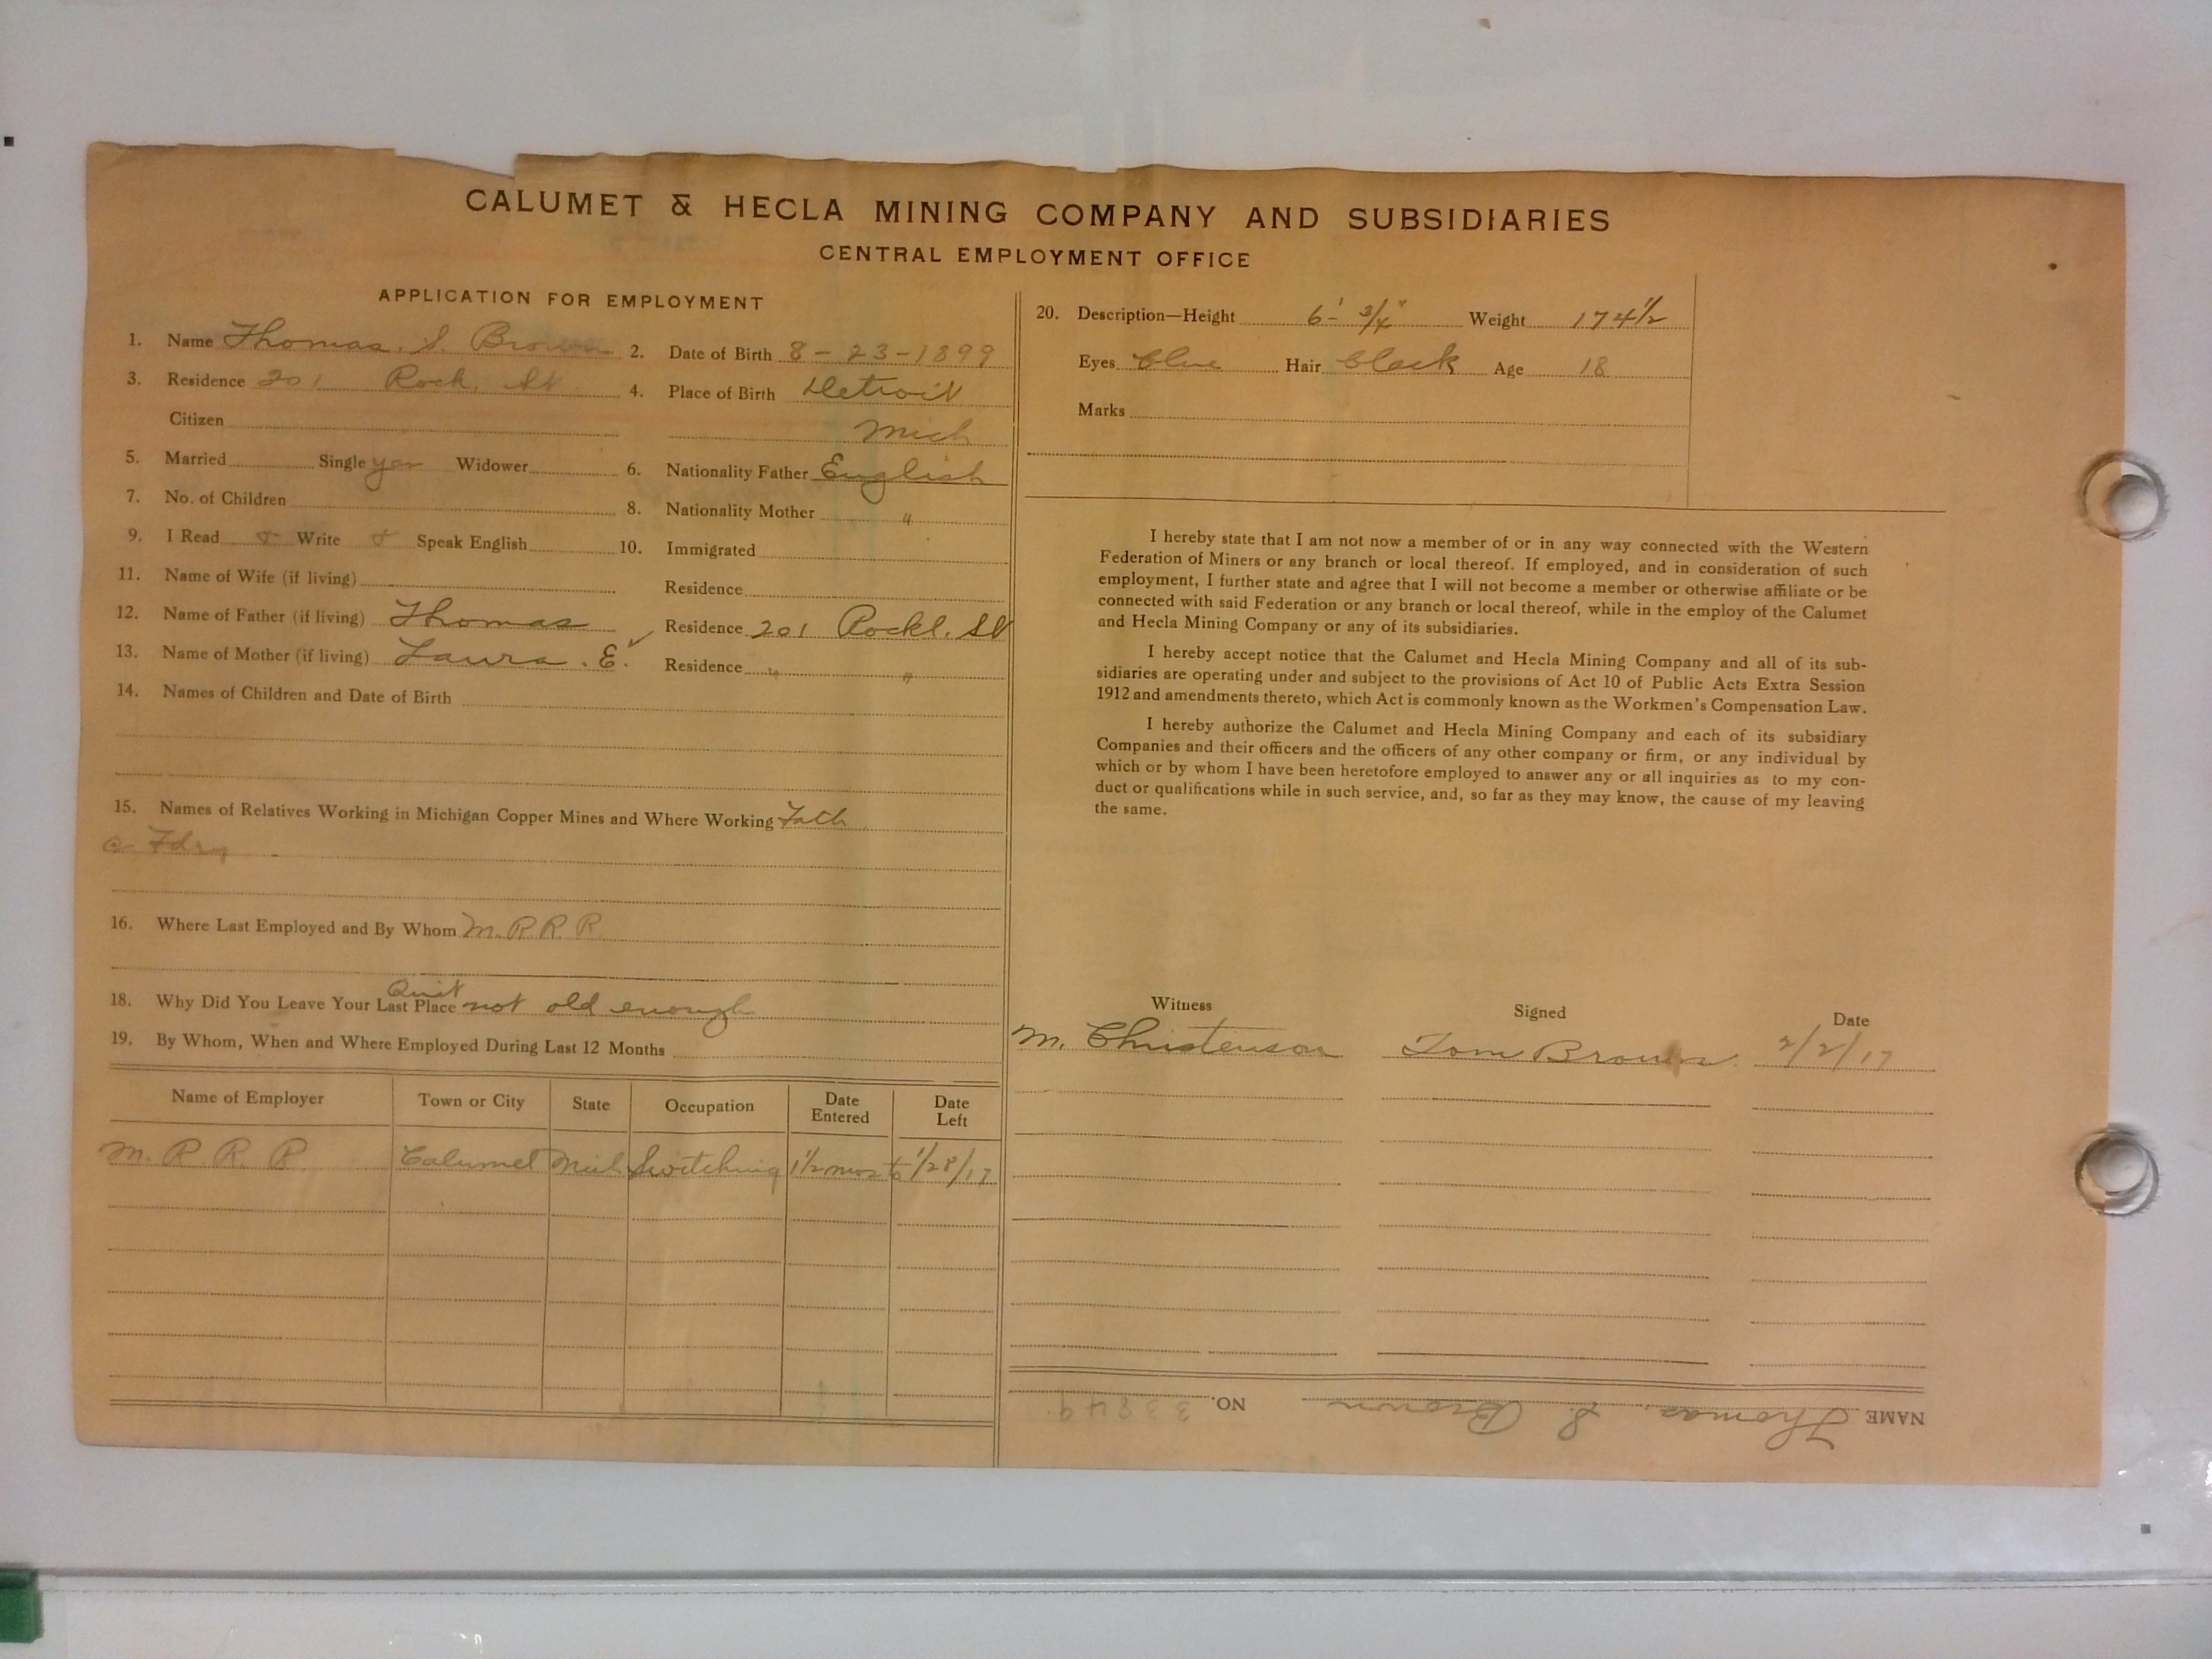 CALUMET & HECLA MINING COMPANY AND SUBSIDIARIES
CENTRAL EMPLOYMENT OFFICE
APPLICATION FOR EMPLOYMENT
1. Name Thomas. S. Brown 2. Date of Birth 8-23-1899
3. Residence 201 Rock. St 4. Place of Birth Detroit
Citizen Mich
5. Married Single yes Widower 6. Nationality Father English
7. No. of Children 8. Nationality Mother "
9. I Read & Write & Speak English 10. Immigrated
11. Name of Wife (if living) Residence
12. Name of Father (if living) Thomas Residence 201 Rockl. St
13. Name of Mother (if living) Laura. E. Residence " "
14. Names of Children and Date of Birth
15. Names of Relatives Working in Michigan Copper Mines and Where Working Fath
@ Fdry
16. Where Last Employed and By Whom M. R R R
Quit
18. Why Did You Leave Your Last Place not old enough
19. By Whom, When and Where Employed During Last 12 Months
Name of Employer Town or City State Occupation Date Entered Date Left
M. R R. R Calumet Mich Switching 1 1/2 mos to 1/28/17
20. Description—Height 6'- 3/4" Weight 174 1/2
Eyes Blue Hair Black Age 18
Marks
I hereby state that I am not now a member of or in any way connected with the Western
Federation of Miners or any branch or local thereof. If employed, and in consideration of such
employment, I further state and agree that I will not become a member or otherwise affiliate or be
connected with said Federation or any branch or local thereof, while in the employ of the Calumet
and Hecla Mining Company or any of its subsidiaries.
I hereby accept notice that the Calumet and Hecla Mining Company and all of its sub-
sidiaries are operating under and subject to the provisions of Act 10 of Public Acts Extra Session
1912 and amendments thereto, which Act is commonly known as the Workmen's Compensation Law.
I hereby authorize the Calumet and Hecla Mining Company and each of its subsidiary
Companies and their officers and the officers of any other company or firm, or any individual by
which or by whom I have been heretofore employed to answer any or all inquiries as to my con-
duct or qualifications while in such service, and, so far as they may know, the cause of my leaving
the same.
Witness Signed Date
M. Christenson Tom Brown. 2/2/17
NAME Thomas. S. Brown NO. 33849